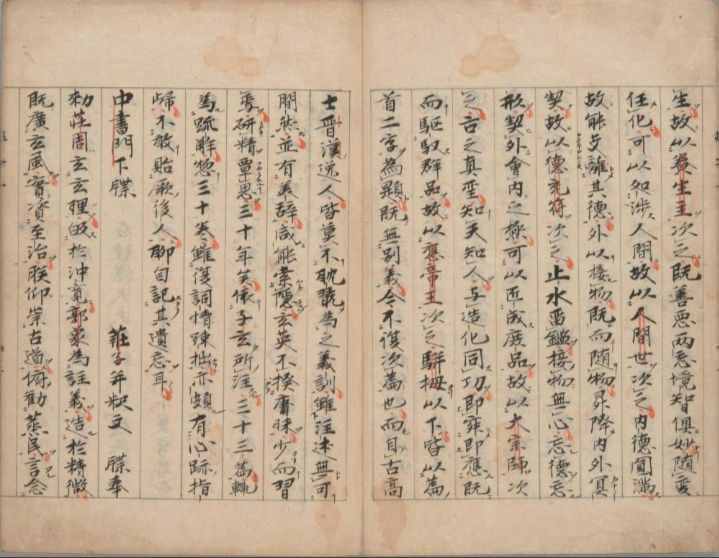 生故以養生主次之既善悪兩忘境智俱妙隨變
任化可以処涉人間故以人間世次之内德圓滿
故能支離其德外以接物既而随物昇降内外冥
契故以德充符次之止水畄鑑接物無心忘德忘
形契外會内之極可以匠成庶品故以大宗師次
之古之真聖知天知人与造化同功即寂即應既
而驅馭群品故以應帝王次之駢拇以下皆以篇
首二字為題既無別義今不復次篇也而自古高
士晉漢逸人皆莫不耽翫為之義訓雖注述無可
間然並有美辞咸能索隱玄英不揆庸昧少而習
焉研精覃思三十年矣依子玄所注三十三篇輒
為疏解惣三十巻雖復詞情疎拙亦頗有心跡指
歸不敢貽厥後人聊自記其遺忘耳
中書門下牒 莊子 文 牒奉
勑莊周玄玄理 於沖 郭象為註義造於精微
既廣玄風實資至治朕仰崇古道俯勸蒸民言念